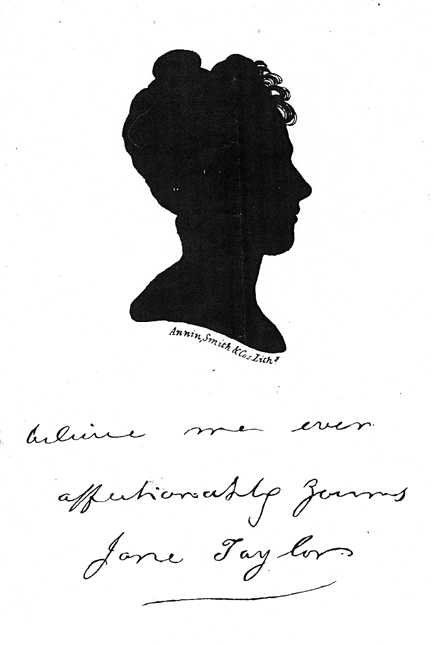 Annin, Smith & Co. Lith.
believe me ever
affectionately yours
Jane Taylor